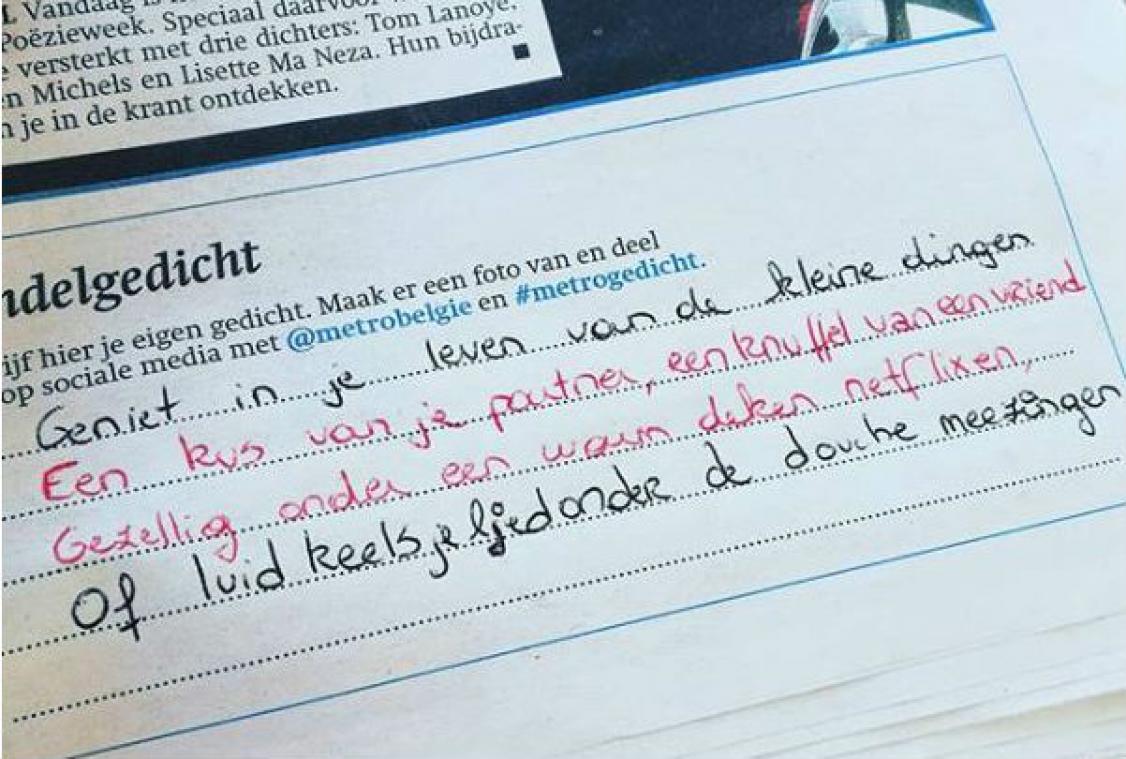 L Vandaag is
Poëzieweek. Speciaal daarvoor
e versterkt met drie dichters: Tom Lanoye,
n Michels en Lisette Ma Neza. Hun bijdra-
n je in de krant ontdekken.
ndelgedicht
ijf hier je eigen gedicht. Maak er een foto van en deel
op sociale media met @metrobelgie en #metrogedicht.
Geniet in je leven van de kleine dingen
Een kus van je partner, een knuffel van een vriend
Gezellig onder een warm deken netflixen,
Of luidkeels je lied onder de douche meezingen